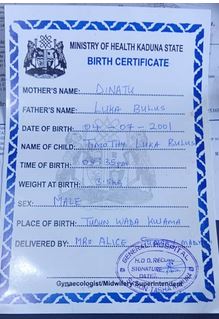 MINISTRY OF HEALTH KADUNA STATE
BIRTH CERTIFICATE
MOTHER'S NAME: DINATU
FATHER'S NAME: LUKA BULUS
DATE OF BIRTH: 04-07-2001
NAME OF CHILD: TIMOTHY LUKA BULUS
TIME OF BIRTH:
WEIGHT AT BIRTH: 3.5kg
SEX: MALE
PLACE OF BIRTH: TUDUN WADA KWAMA
DELIVERED BY: MRS ALICE
GENERAL HOSPITAL
H.O.D. RECORD
SIGNATURE
DATE
Gynaecologist/Midwifery Superintendent